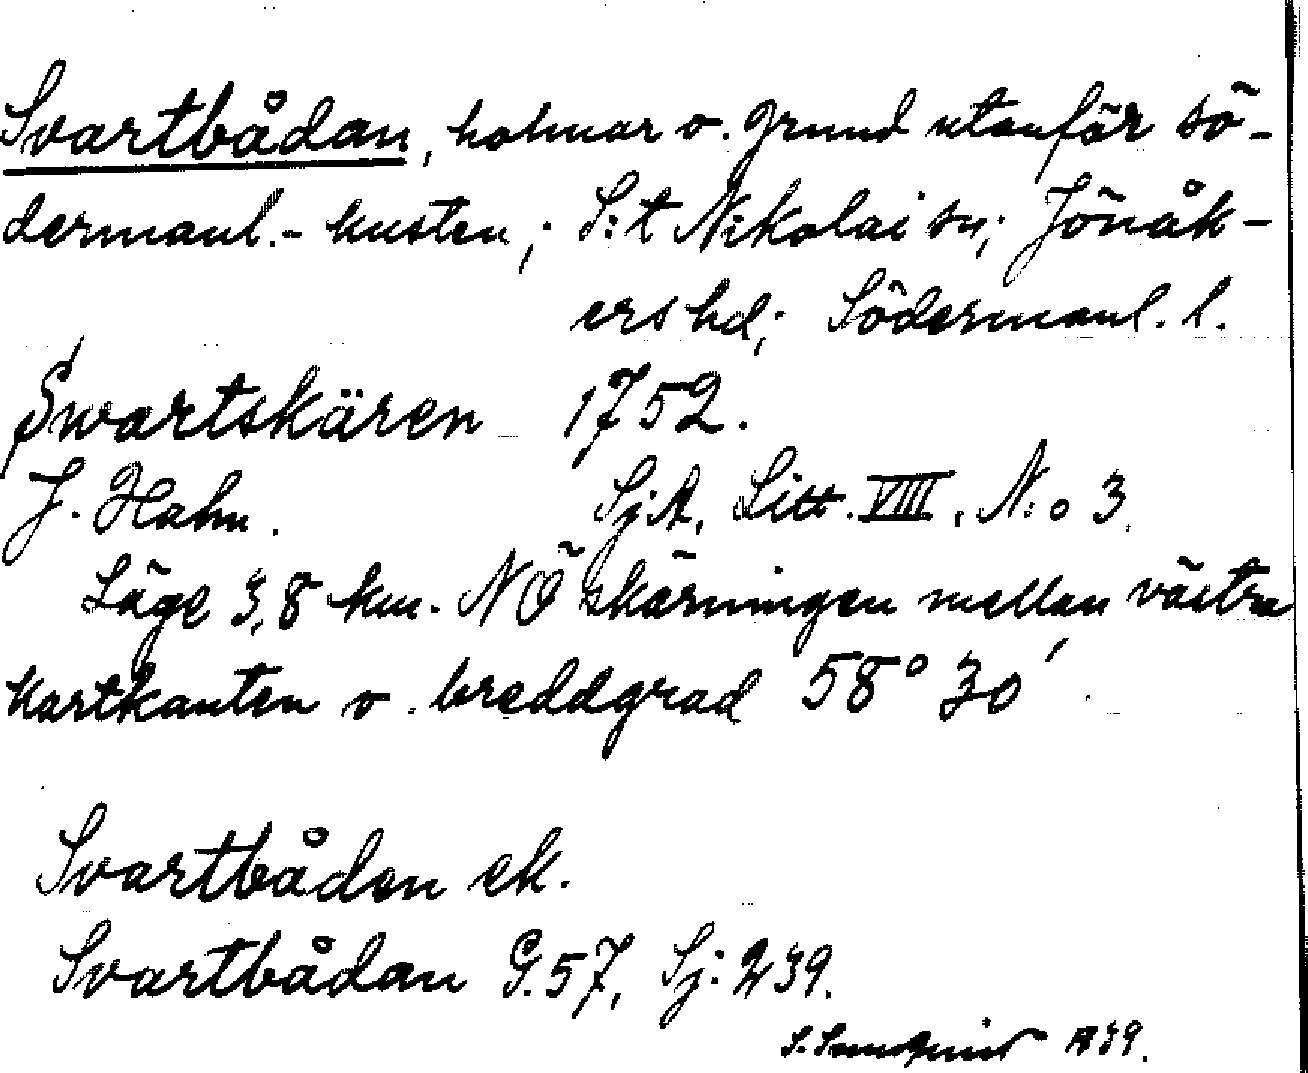 Svartbådan, holmar o. grund utanför sö-
dermanl.- kusten,; S:t Nikolai sn; Jönåk-
ers hd; Södermanl. l.
Swartskären 1752.
J. Hahn. SjA, Litt. VIII, N:o 3.
Läge 3,8 km. NÖ skärningen mellan västra
kartkanten o. breddgrad 58° 30'
Svartbåden ek.
Svartbådan G.57, Sj: 239.
S. 1939.